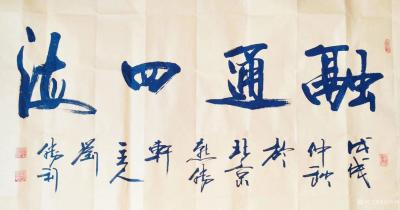 融通四海
戊戌
仲秋
於
北京
軒
主人
劉
勝利